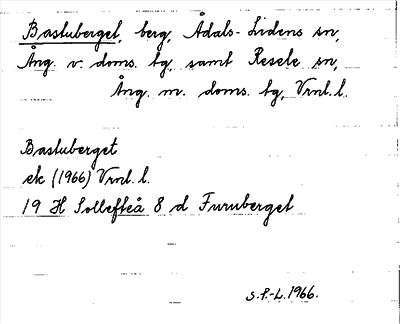 Bastuberget, berg, Ådals-Lidens sn,
Ång. v. doms. tg, samt Resele sn,
Ång. m. doms. tg, Vrnl. l.
Bastuberget
ek (1966) Vrnl. l.
19 H Sollefteå 8 d Furuberget
S.F.-L. 1966.